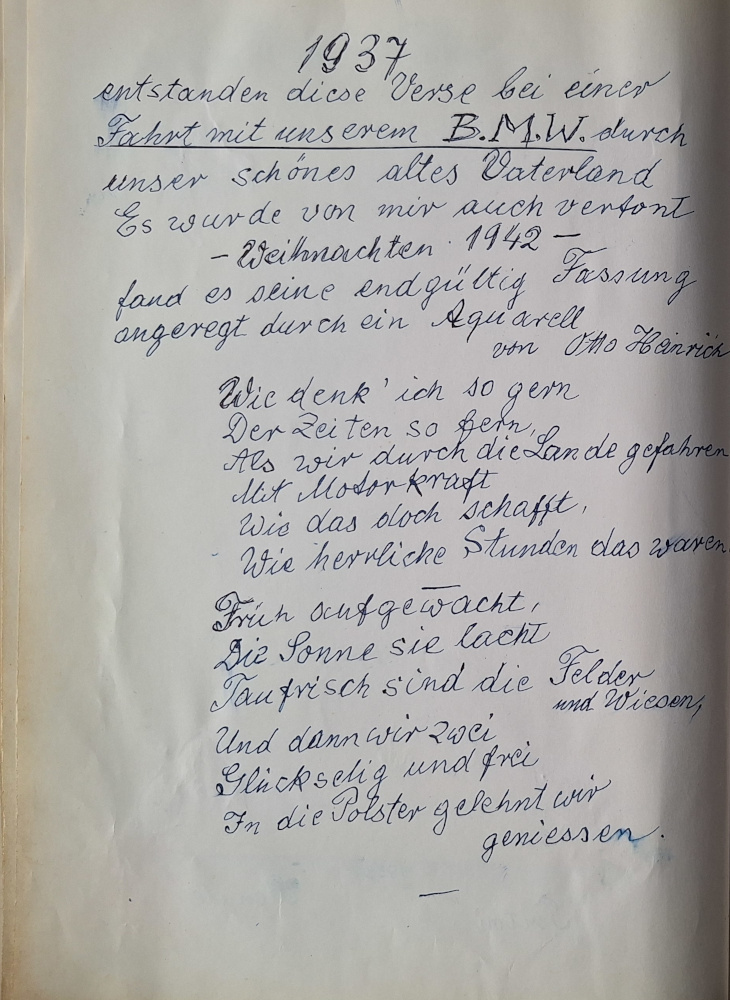 1937
entstanden diese Verse bei einer
Fahrt mit unserem B.M.W. durch
unser schönes altes Vaterland
Es wurde von mir auch vertont
- Weihnachten 1942 -
fand es seine endgültig Fassung
angeregt durch ein Aquarell
von Otto Heinrich
Wie denk' ich so gern
Der Zeiten so fern,
Als wir durch die Lande gefahren
Mit Motorkraft
Wie das doch schafft,
Wie herrliche Stunden das waren
—
Früh aufgewacht,
Die Sonne sie lacht
Taufrisch sind die Felder
und Wiesen,
Und dann wir zwei
Glückselig und frei
In die Polster gelehnt wir
geniessen.
—